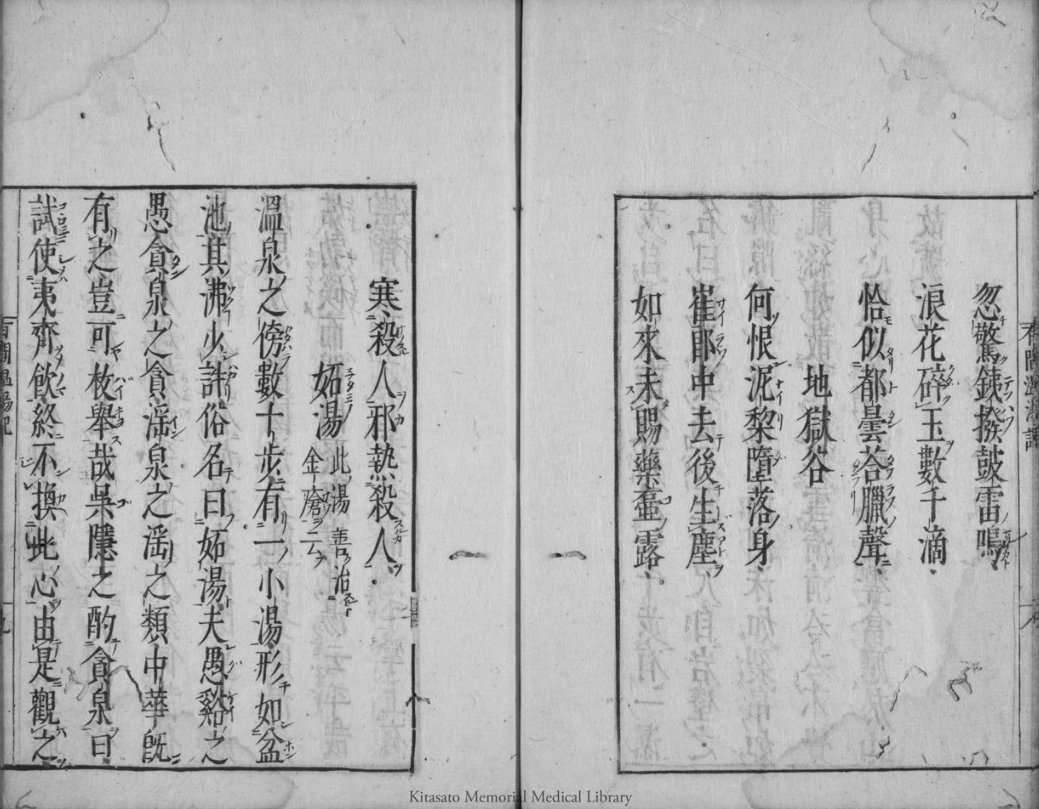 忽驚銕撥鼓雷鳴
浪花碎玉數千滴
恰似都曇荅臘聲
地獄谷
何恨泥犂墮落身
崔郎中去後生塵
如來未賜藥壺露
寒殺人邪熱殺人
妬湯 此湯善治金瘡云
溫泉之傍數十步有一小湯形如盆
池其沸少許俗名曰妬湯夫愚谿之
愚貪泉之貪淫泉之淫之類中華既
有之豈可枚舉哉吳隱之酌貪泉曰
試使夷齊飮終不換此心由是觀之
Kitasato Memorial Medical Library